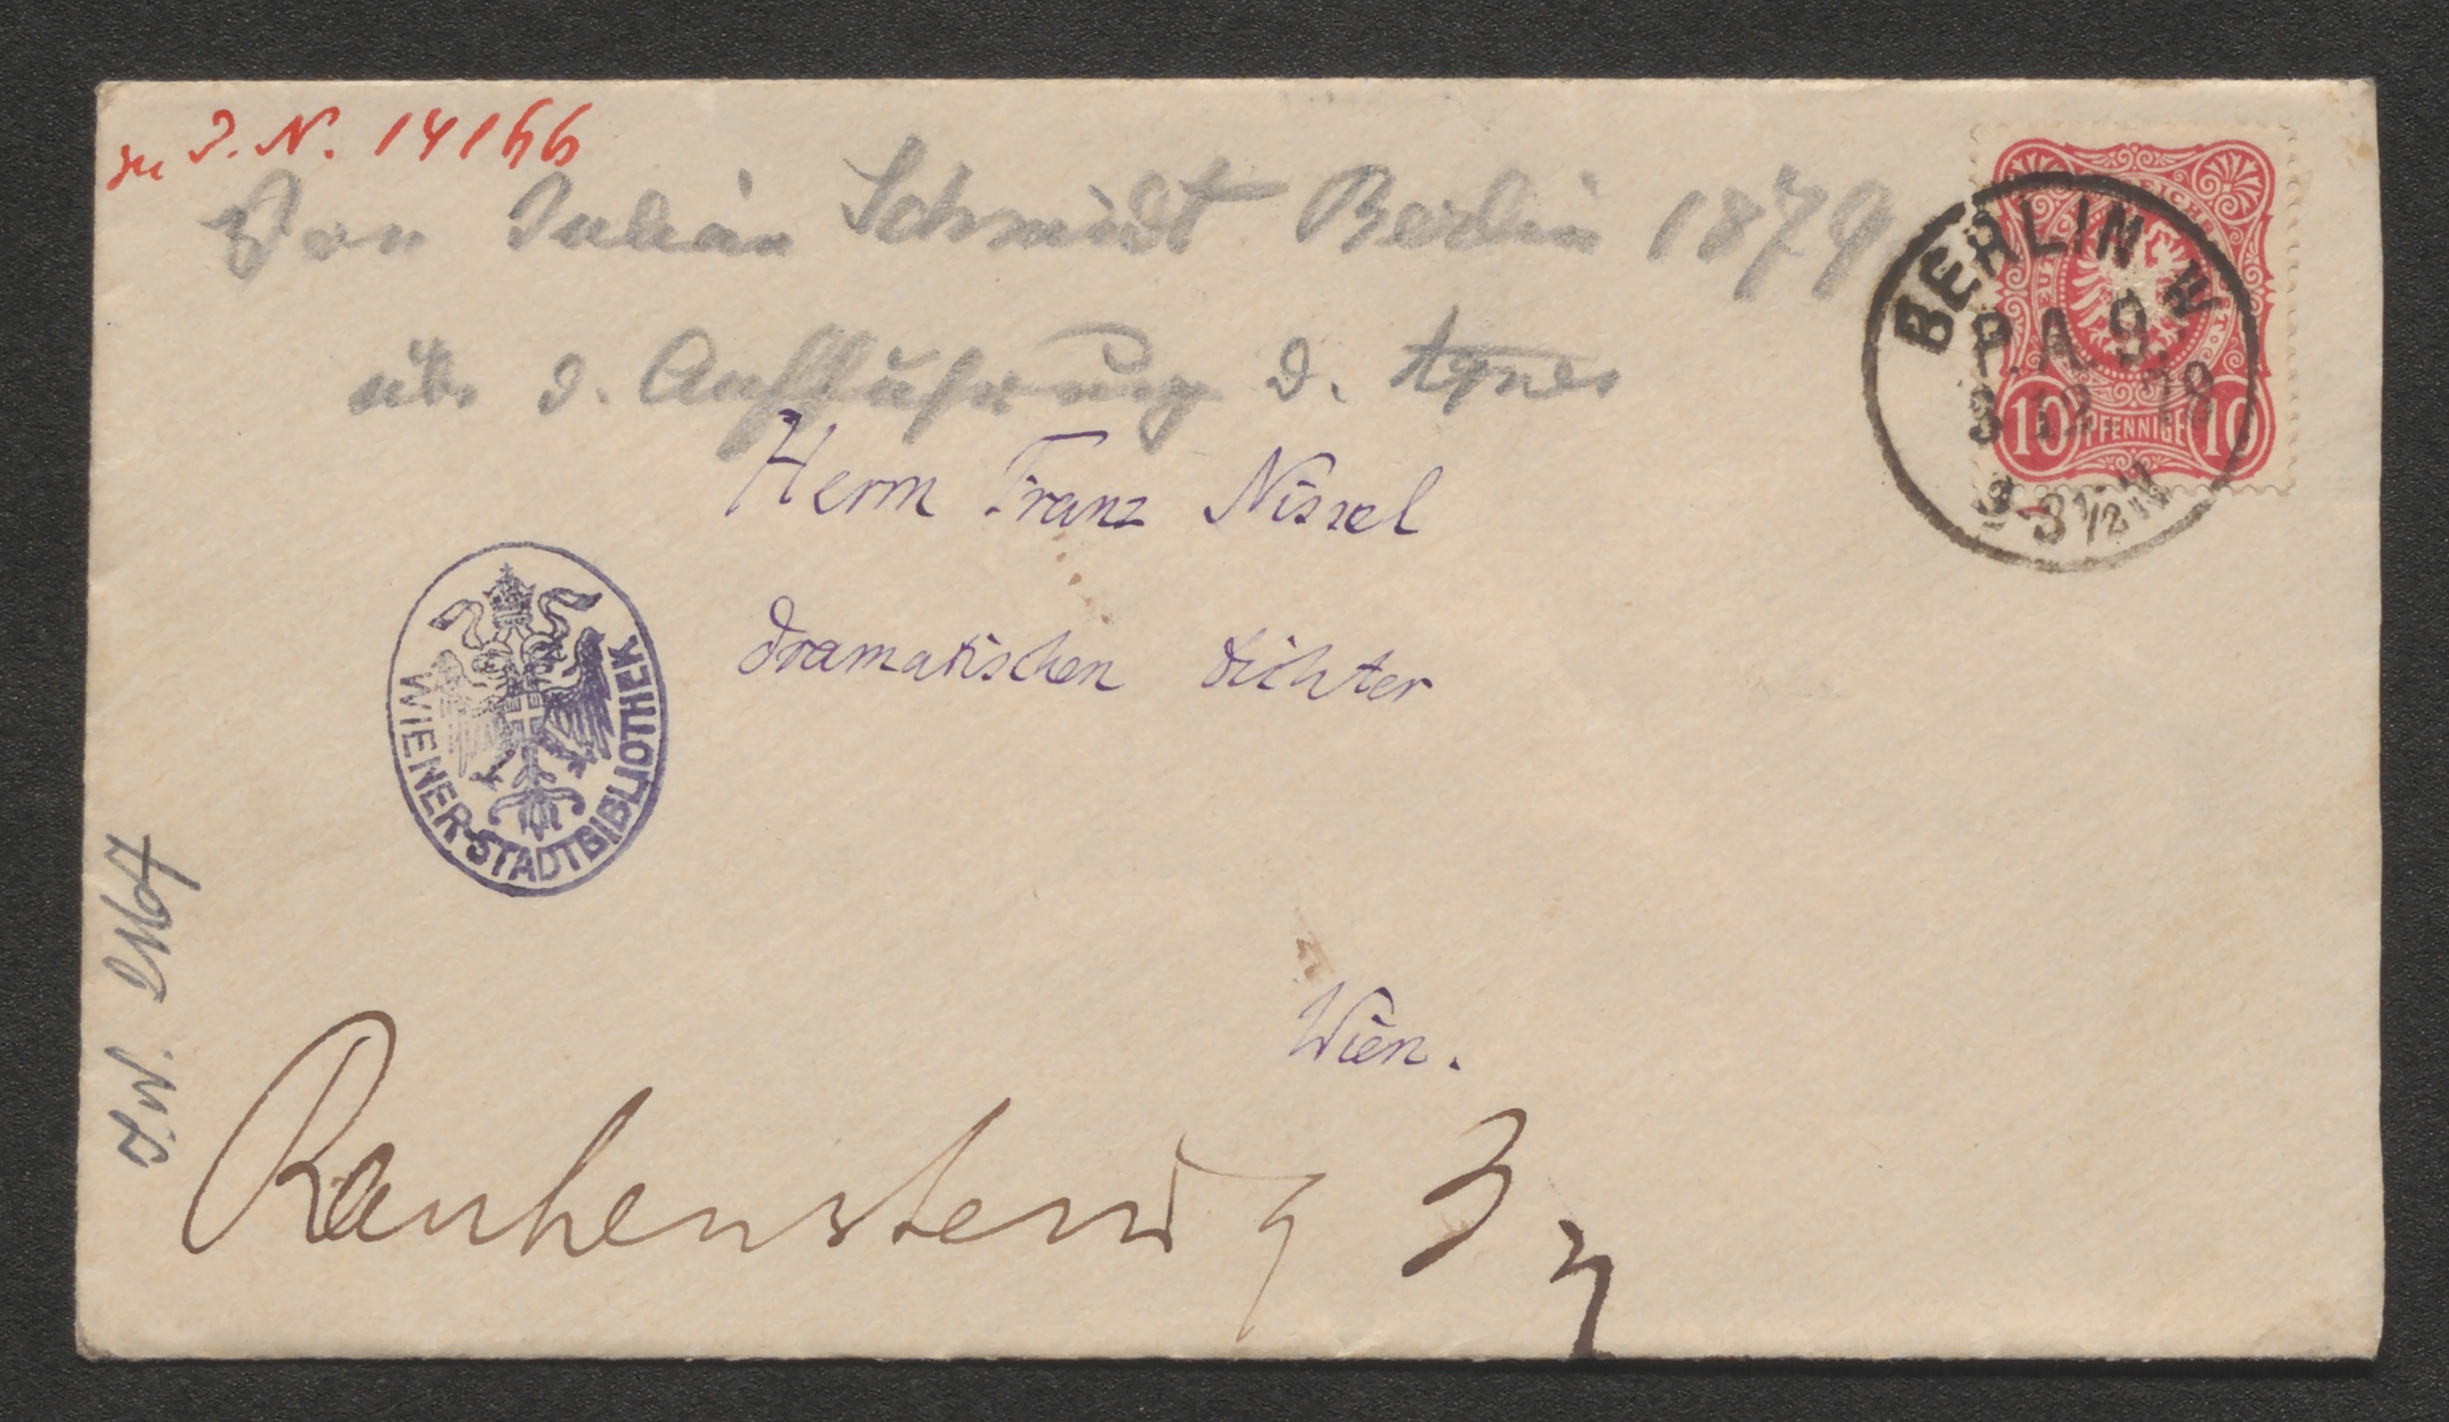 zu I.N. 14166
Von Julian Schmidt Berlin 1879
über d. Aufführung d. Agnes
DEUTSCHE REICHS-POST
10 PFENNIGE 10
BERLIN W
P.A. 9.
3 12 78
3-3½N
Herrn Franz Nissel
dramatischen Dichter
WIENER STADTBIBLIOTHEK
Wien.
I.N.
Rauhensteing 3